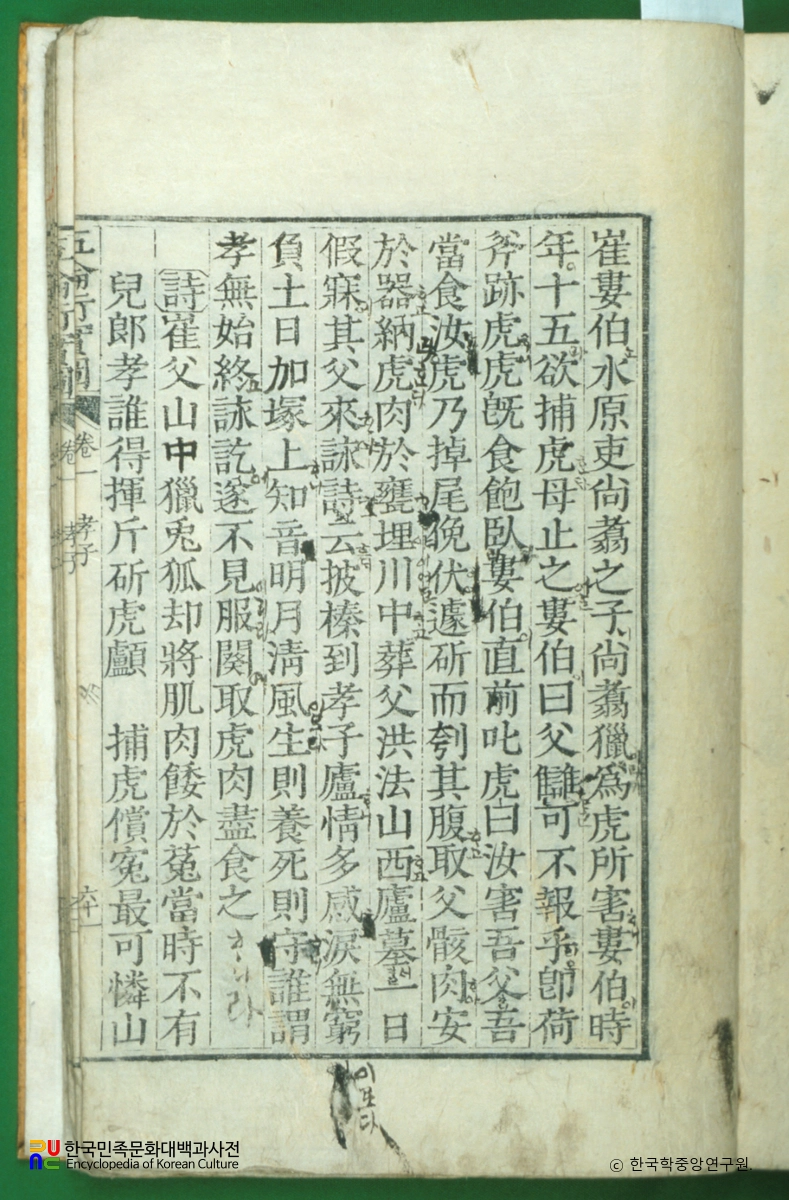 崔婁伯水原吏尙翥之子尙翥獵爲虎所害婁伯時
年十五欲捕虎母止之婁伯曰父讎可不報乎卽荷
斧跡虎虎旣食飽臥婁伯直前叱虎曰汝害吾父吾
當食汝虎乃掉尾俛伏遽斫而刳其腹取父骸肉安
於器納虎肉於甕埋川中葬父洪法山西廬墓一日
假寐其父來詠詩云披榛到孝子廬情多感淚無窮
負土日加塚上知音明月淸風生則養死則守誰謂
孝無始終詠訖遂不見服闋取虎肉盡食之
詩崔父山中獵兎狐却將肌肉餧於菟當時不有
兒郞孝誰得揮斤斫虎顱 捕虎償寃最可憐山
五倫行實圖 卷一 孝子 六十一
이로다
한국민족문화대백과사전
Encyclopedia of Korean Culture
ⓒ 한국학중앙연구원.